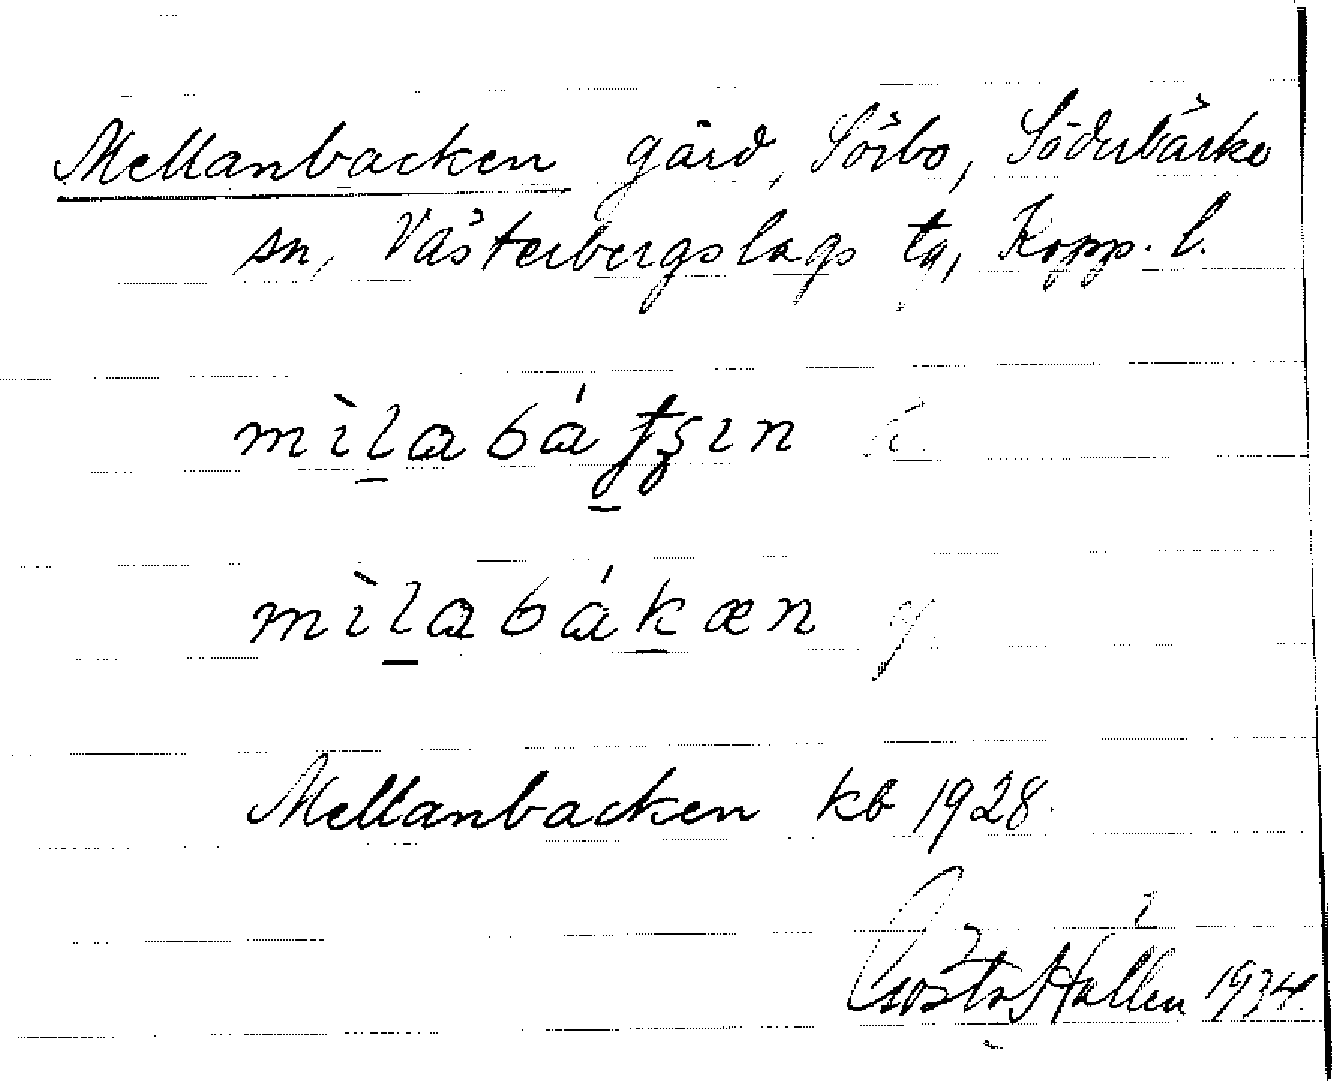 Mellanbacken gård, Sörbo, Söderbärke
sn, Västerbergslags tg, Kopp. l.
mìlabáꞓʂın
mìlabákæn
Mellanbacken kb 1928.
Gösta Hallén 1934.